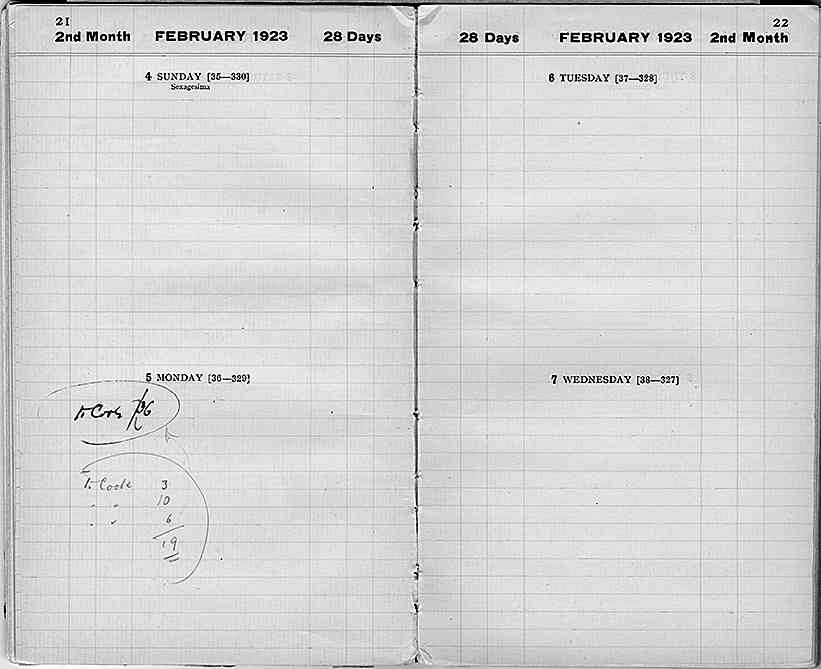 21
2nd Month FEBRUARY 1923 28 Days
4 SUNDAY [35—330]
Sexagesima
5 MONDAY [36—329]
3
10
6
19
22
28 Days FEBRUARY 1923 2nd Month
6 TUESDAY [37—328]
7 WEDNESDAY [38—327]